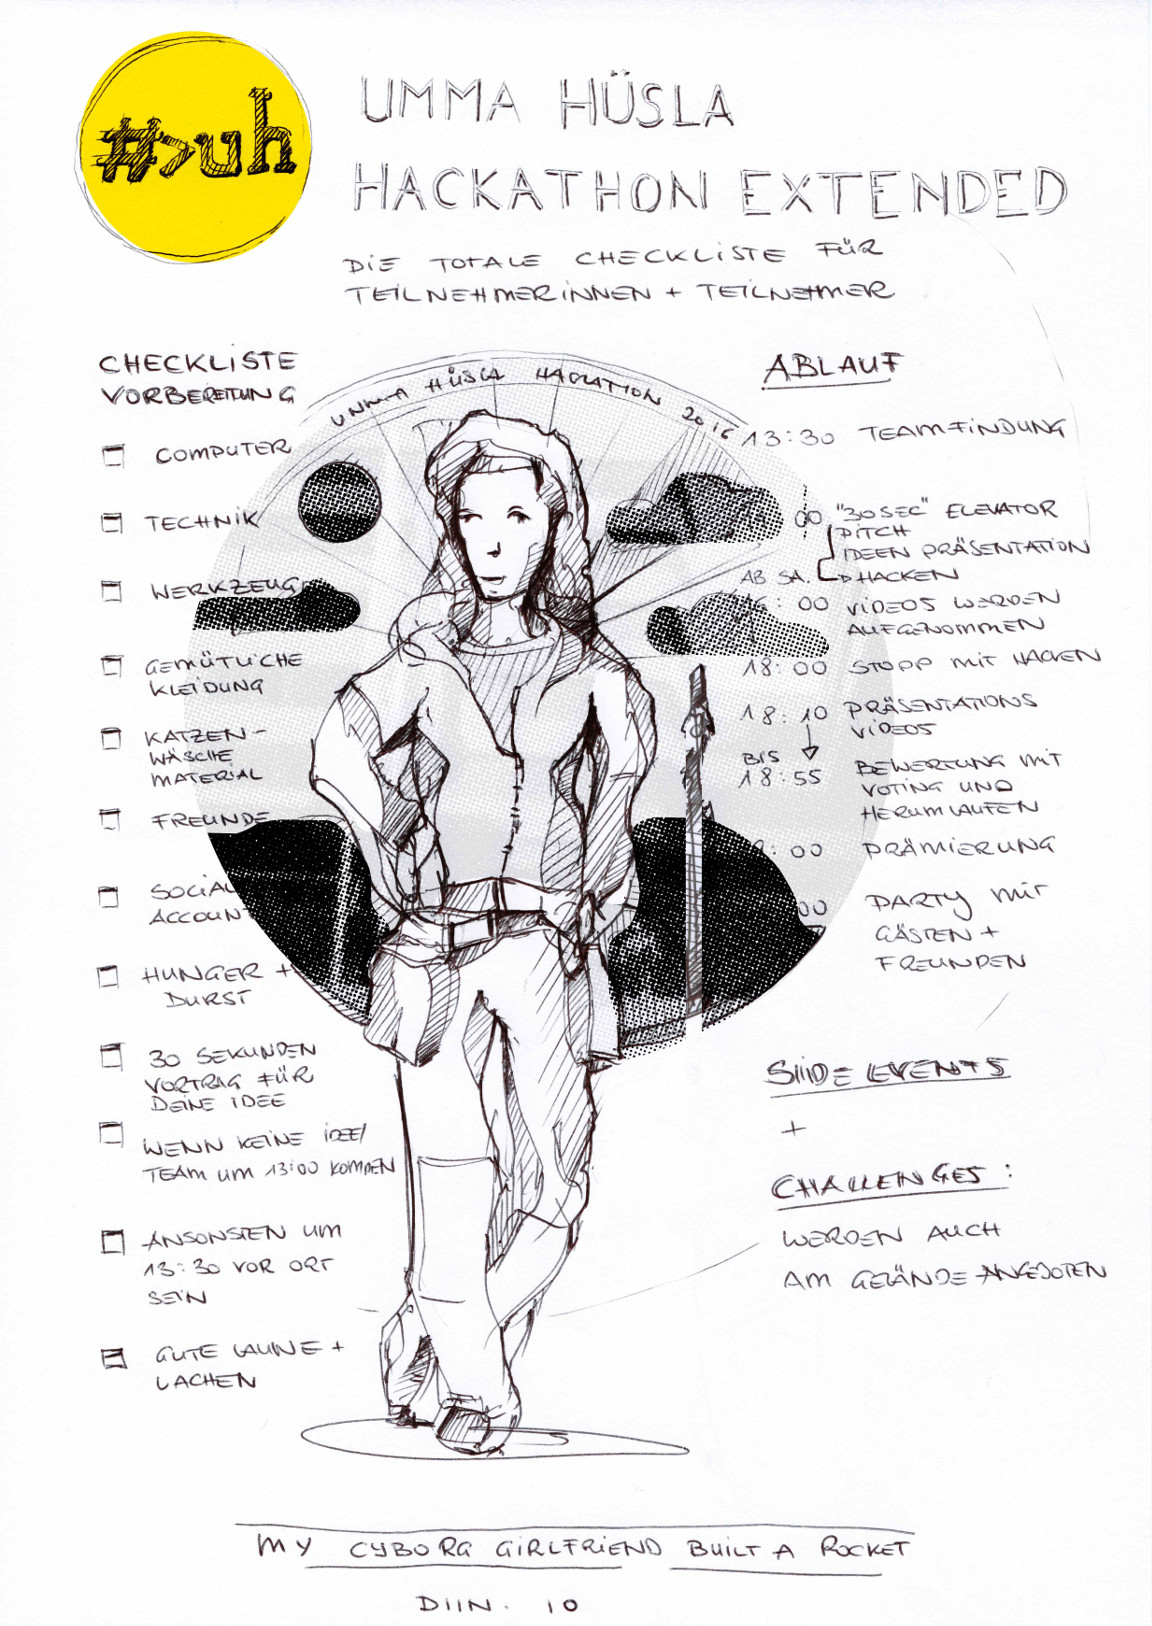 #>uh
UMMA HÜSLA
HACKATHON EXTENDED
DIE TOTALE CHECKLISTE FÜR
TEILNEHMERINNEN + TEILNEHMER
CHECKLISTE
VORBEREITUNG
COMPUTER
TECHNIK
WERKZEUG
GEMÜTLICHE
KLEIDUNG
KATZEN-
WÄSCHE
MATERIAL
FREUNDE
SOCIAL
ACCOUNT
HUNGER +
DURST
30 SEKUNDEN
VORTRAG FÜR
DEINE IDEE
WENN KEINE IDEE/
TEAM UM 13:00 KOMMEN
ANSONSTEN UM
13:30 VOR ORT
SEIN
GUTE LAUNE +
LACHEN
UMMA HÜSLA HACKATHON 2016
ABLAUF
13:30 TEAMFINDUNG
00 "30SEC" ELEVATOR
PITCH
IDEEN PRÄSENTATION
AB SA. HACKEN
: 00 VIDEOS WERDEN
AUFGENOMMEN
18:00 STOPP MIT HACKEN
18:10 PRÄSENTATIONS
VIDEOS
BIS
18:55 BEWERTUNG MIT
VOTING UND
HERUMLAUFEN
: 00 PRÄMIERUNG
00 PARTY MIT
GÄSTEN +
FREUNDEN
SIIDE EVENTS
+
CHALLENGES:
WERDEN AUCH
AM GELÄNDE ANGEBOTEN
MY CYBORG GIRLFRIEND BUILT A ROCKET
DIIN. 10